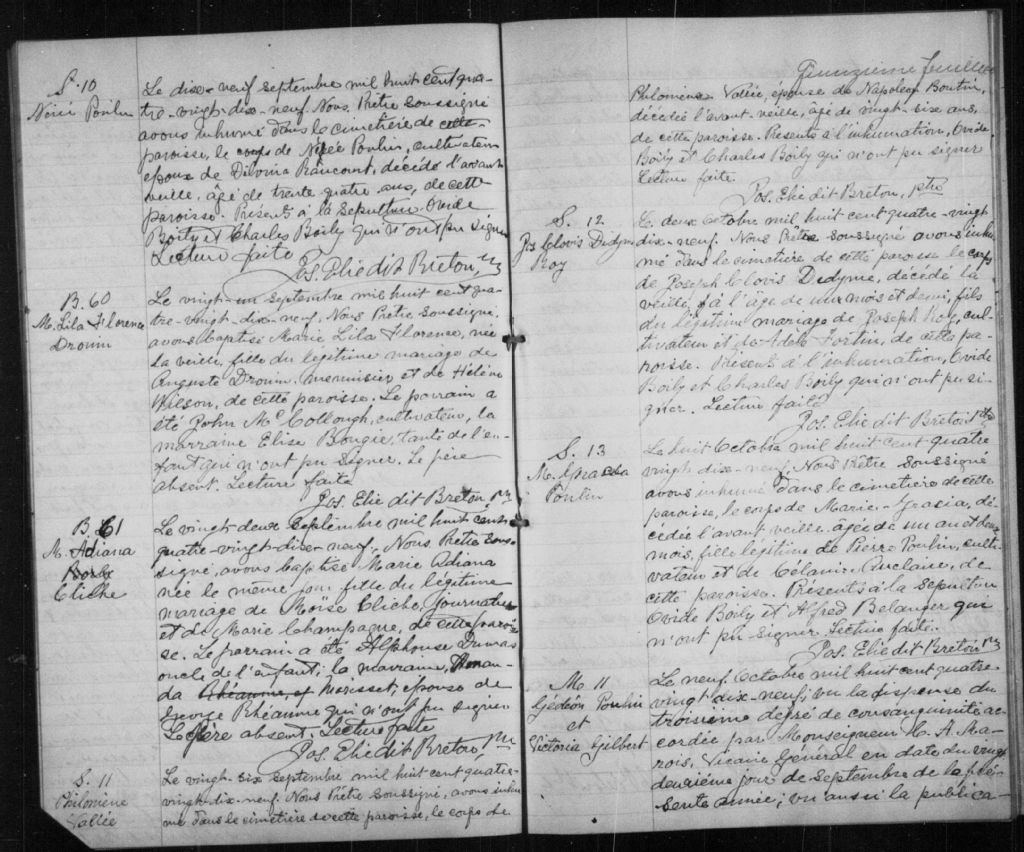 S. 10
Nérée Poulin
Le dix-neuf septembre mil huit cent qua-
tre-vingt-dix-neuf. Nous Prêtre soussigné
avons inhumé dans le cimetière de cette
paroisse, le corps de Nérée Poulin, cultivateur
époux de Dilvina Rancourt, décédé l'avant
veille, âgé de trente quatre ans, de cette
paroisse. Présents à la sépulture Ovide
Boily et Charles Boily qui n'ont pu signer
Lecture faite
Jos. Elie dit Breton, ptre
B. 60
M. Lila Florence
Drouin
Le vingt-un septembre mil huit cent qua-
tre-vingt-dix-neuf. Nous Prêtre soussigné
avons baptisé Marie Lila Florence, née
la veille, fille du légitime mariage de
Auguste Drouin, menuisier et de Hélène
Wilson, de cette paroisse. Le parrain a
été John Mc Collough, cultivateur, la
marraine Elise Bougie, tante de l'en-
fant qui n'ont pu signer. Le père
absent. Lecture faite
Jos. Elie dit Breton ptre
B. 61
M. Adiana
Cliche
Le vingt deux septembre mil huit cent
quatre-vingt-dix-neuf, Nous Prêtre sous-
signé, avons baptisé Marie Adiana
née le même jour fille du légitime
mariage de Moïse Cliche, journalier
et de Marie Champagne, de cette parois-
se. Le parrain a été Alphonse Dumas
oncle de l'enfant; la marraine,
da Morisset, épouse de
George Rhéaume qui n'ont pu signer
Le père absent. Lecture faite
Jos. Elie dit Breton, ptre
S. 11
Philomène
Vallée
Le vingt-six septembre mil huit cent quatre-
vingt-dix-neuf. Nous Prêtre soussigné, avons inhu-
mé dans le cimetière de cette paroisse, le corps de
Quinzième feuillet
Philomène Valée, épouse de Napoléon Boutin,
décédée l'avant-veille, âgée de vingt-six ans,
de cette paroisse. Présents à l'inhumation, Ovide
Boily et Charles Boily qui n'ont pu signer
Lecture faite.
Jos. Elie dit Breton, ptre
S. 12
Jos Clovis Didyme
Roy
Le deux Octobre mil huit cent quatre-vingt
dix-neuf. Nous Prêtre soussigné avons inhu-
mé dans le cimetière de cette paroisse le corps
de Joseph Clovis Didyme, décédé la
veille, à l'âge de un mois et demi, fils
du légitime mariage de Joseph Roy, cul-
tivateur et de Adèle Fortin, de cette pa-
roisse. Présents à l'inhumation, Ovide
Boily et Charles Boily qui n'ont pu si-
gner. Lecture faite
Jos. Elie dit Breton ptre
S. 13
M. Gracia
Poulin
Le huit Octobre mil huit cent quatre
vingt-dix-neuf, Nous Prêtre soussigné
avons inhumé dans le cimetière de cette
paroisse, le corps de Marie-Gracia, dé-
cédée l'avant veille âgée de un an et deux
mois, fille légitime de Pierre Poulin, culti-
vateur et de Célanire Anclaire, de
cette paroisse. Présents à la sépulture
Ovide Boily et Alfred Belanger qui
n'ont pu signer. Lecture faite.
Jos. Elie dit Breton ptre
M. 11
Gédéon Poulin
et
Victoria Gilbert
Le neuf Octobre mil huit cent quatre
vingt-dix-neuf; vu la dispense du
troisième degré de consanguinité ac-
cordée par Monseigneur H. A. Ma-
rois, Vicaire Général en date du vingt
deuxième jour de septembre de la pré-
sente année; vu aussi la publica-